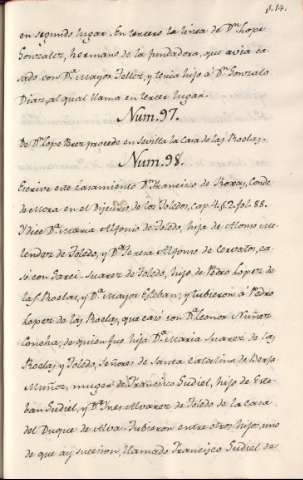 114.
en segundo lugar. En tercero la linea de Dn. Lope
Gonzalez, hermano de la fundadora, que avia ca-
sado con Da. Mayor Tellez, y tenia hijo á Dn. Gonzalo
Diaz, al qual llama en tercer lugar.
Num. 97.
De Dn. Lope procede en Sevilla la Casa de las Roelas.
Num. 98.
Escrive este casamiento Dn. Francisco de Roxas, Conde
de Mora en el Discurso de los Toledos, cap. 4. §. 2. fol. 88.
Y dice Da. Maria Alfonso de Toledo, hija de Alonso Me-
lendez de Toledo, y Da. Teresa Alfonso de Cervatos, ca-
só con Garci Suarez de Toledo, hijo de Pedro Lopez de
las Roelas, y Da. Mayor Esteban; y tubieron á Pedro
Lopez de las Roelas, que casó con Da. Leonor Nuñez
de quien fue hija Da. Maria Suarez de las
Roelas, y Toledo, Señores de Santa
Muñoz, muger de Francisco Gudiel, hijo de Este-
ban Gudiel, y Da. Ines Alvarez de Toledo de la Casa
del Duque de Alva. Tubieron entre otros hijos, uno
de que ay sucesion, llamado Francisco Gudiel de